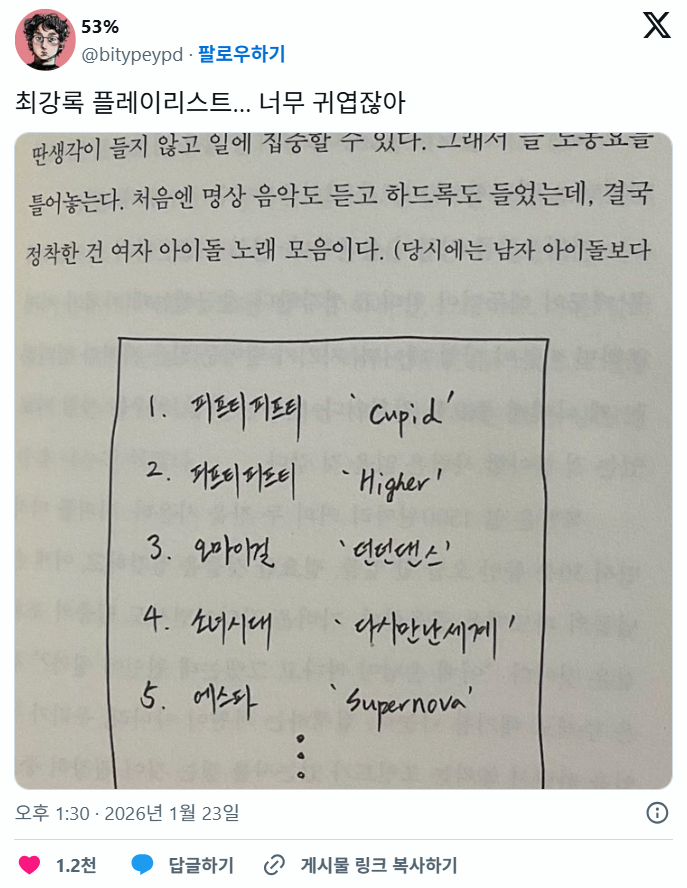 53%
@bitypeypd · 팔로우하기
최강록 플레이리스트... 너무 귀엽잖아
딴생각이 들지 않고 일에 집중할 수 있다. 그래서 늘 노동요를
틀어놓는다. 처음엔 명상 음악도 듣고 하드록도 들었는데, 결국
정착한 건 여자 아이돌 노래 모음이다. (당시에는 남자 아이돌보다
1. 피프티피프티 'Cupid'
2. 피프티피프티 'Higher'
3. 오마이걸 '던던댄스'
4. 소녀시대 '다시만난세계'
5. 에스파 'Supernova'
오후 1:30 · 2026년 1월 23일
1.2천 답글하기 게시물 링크 복사하기